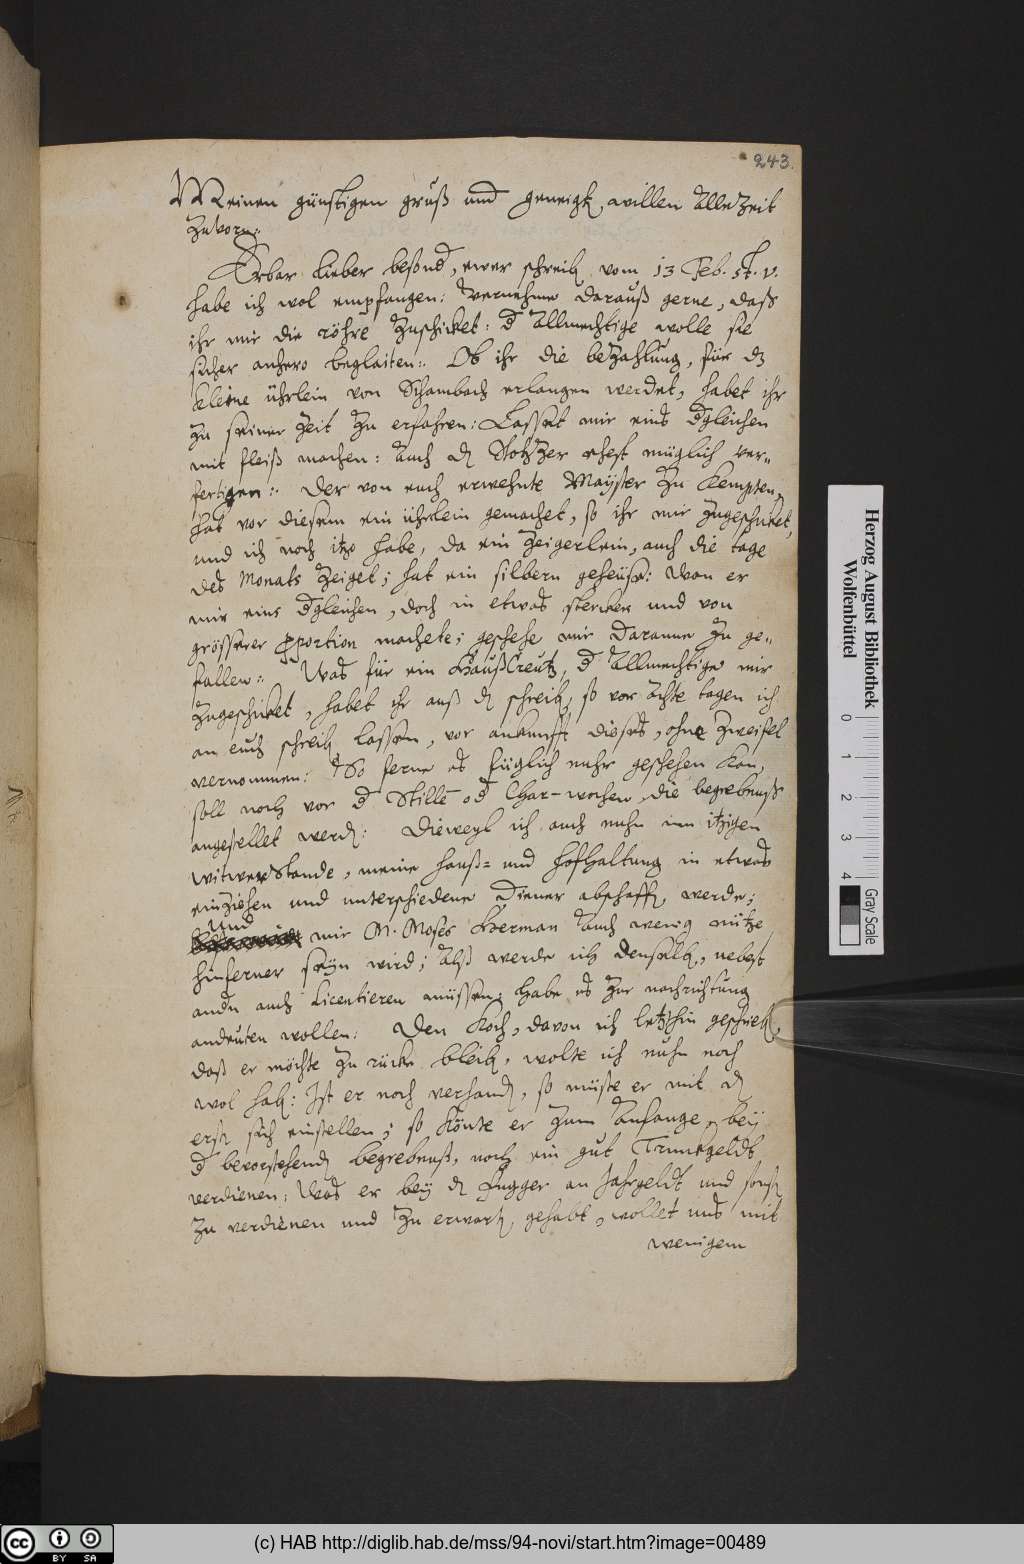 243.
Meinen günstigen gruß und geneigt. willen Allezeit
Zuvorn:
Erbar lieber besond., ewer schreib. vom 13 Feb. st. v.
habe ich wol empfangen: Vernehme darauß gerne, daß
ihr mir die röhre Zuschicket: d Allmechtige wolle sie
sicher anhero beglaiten:. Ob ihr die beZahlung, für dz
kleine ührlein von Schambach erlangen werdet, habet ihr
Zu seiner Zeit Zu erfahren: Lasset mir eins dgleichen
mit fleiß machen: Auch d. ehest müglich ver-
fertigen:. Der von euch erwehnte Mayster Zu Kempten,
hat vor diesem ein ührlein gemachet, so ihr mir Zugeschicket,
und ich noch itzo habe, da ein Zeigerlein, auch die tage
des Monats Zeiget; hat ein silbern geheüse: Wan er
mir eins dgleichen, doch in etwas stercker und von
grösserer pportion machete; geschehe mir daranne Zu ge-
fallen:. Was für ein Haußcreutz, d Allmechtige mir
Zugeschicket, habet ihr auß d. schreib., so vor achte tagen ich
an euch schreib. lassen, vor ankunfft dieses, ohne Zweifel
vernommen: So ferne es füglich nuhr geschehen kan,
soll noch vor d Stille od Char-wochen, die begrebnuß
angestellet werd.: Dieweyl ich auch nuhn inn itzigen
witwerstande, meine hauß- und hofhaltung in etwas
einziehen und unterschiedene Diener abschaff. werde;
Und
mir M. Moses Herman Auch wenig nütze
hinferner seyn wird; Alß werde ich denselb., nebest
andn auch Licentieren müssen; habe es Zur nachrichtung
andeuten wollen: Den Koch, davon ich letzthin geschrieb.,
daß er möchte Zu rücke bleib., wolte ich nuhn noch
wol hab.: Ist er noch verhand., so müste er mit d.
erst. sich einstellen; so könte er Zum Anfange, bey
d bevorstehend. begrebnuß, noch ein gut Trunkgeldt
verdienen: Was er bey d. Fugger an Jahrgeldt und sonst
Zu verdienen und Zu erwart. gehabt, wollet uns mit
wenigem
Herzog August Bibliothek
Wolfenbüttel
0 1 2 3 4
Gray Scale
cc BY SA
(c) HAB http://diglib.hab.de/mss/94-novi/start.htm?image=00489